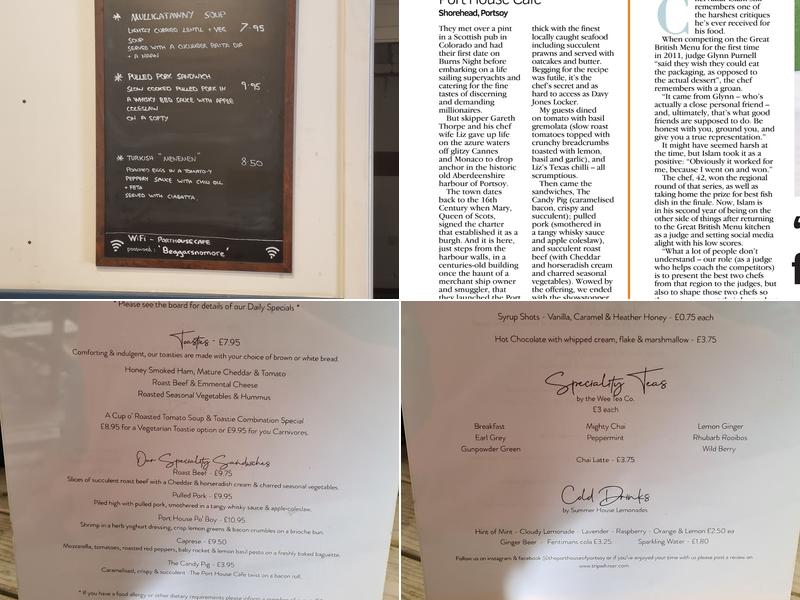 * MULLIGATAWNY SOUP
LIGHTLY CURRIED LENTIL + VEG 7.95
SOUP
SERVED WITH A CUCUMBER RAITA DIP
+ A NAAN
* PULLED PORK SANDWICH
SLOW COOKED PULLED PORK IN 9.95
A WHISKY BBQ SAUCE WITH APPLE
COLESLAW
ON A SOFTY
* TURKISH "MENEMEN" 8.50
POACHED EGGS IN A TOMATO +
PEPPERY SAUCE WITH CHILLI OIL
+ FETA
SERVED WITH CIABATTA.
WiFi - PORTHOUSECAFE
password: 'Beggarsnomore'
Port House Cafe
Shorehead, Portsoy
They met over a pint
in a Scottish pub in
Colorado and had
their first date on
Burns Night before
embarking on a life
sailing superyachts and
catering for the fine
tastes of discerning
and demanding
millionaires.
But skipper Gareth
Thorpe and his chef
wife Liz gave up life
on the azure waters
off glitzy Cannes
and Monaco to drop
anchor in the historic
old Aberdeenshire
harbour of Portsoy.
The town dates
back to the 16th
Century when Mary,
Queen of Scots,
signed the charter
that established it as a
burgh. And it is here,
just steps from the
harbour walls, in a
centuries-old building
once the haunt of a
merchant ship owner
and smuggler, that
they launched the Port
thick with the finest
locally caught seafood
including succulent
prawns and served with
oatcakes and butter.
Begging for the recipe
was futile, it's the
chef's secret and as
hard to access as Davy
Jones Locker.
My guests dined
on tomato with basil
gremolata (slow roast
tomatoes topped with
crunchy breadcrumbs
toasted with lemon,
basil and garlic), and
Liz's Texas chilli – all
scrumptious.
Then came the
sandwiches, The
Candy Pig (caramelised
bacon, crispy and
succulent); pulled
pork (smothered in
a tangy whisky sauce
and apple coleslaw),
and succulent roast
beef (with Cheddar
and horseradish cream
and charred seasonal
vegetables). Wowed by
the offering, we ended
with the showstopper
C
remembers one of
the harshest critiques
he's ever received for
his food.
When competing on the Great
British Menu for the first time
in 2011, judge Glynn Purnell
"said they wish they could eat
the packaging, as opposed to
the actual dessert", the chef
remembers with a groan.
"It came from Glynn – who's
actually a close personal friend –
and, ultimately, that's what good
friends are supposed to do. Be
honest with you, ground you, and
give you a true representation."
It might have seemed harsh at
the time, but Islam took it as a
positive: "Obviously it worked for
me, because I went on and won."
The chef, 42, won the regional
round of that series, as well as
taking home the prize for best fish
dish in the finale. Now, Islam is
in his second year of being on the
other side of things after returning
to the Great British Menu kitchen
as a judge and setting social media
alight with his low scores.
"What a lot of people don't
understand – our role (as a judge
who helps coach the competitors)
is to present the best two chefs
from that region to the judges, but
also to shape those two chefs so
* Please see the board for details of our Daily Specials *
Toasties - £7.95
Comforting & indulgent, our toasties are made with your choice of brown or white bread.
Honey Smoked Ham, Mature Cheddar & Tomato
Roast Beef & Emmental Cheese
Roasted Seasonal Vegetables & Hummus
A Cup o' Roasted Tomato Soup & Toastie Combination Special
£8.95 for a Vegetarian Toastie option or £9.95 for you Carnivores.
Our Speciality Sandwiches
Roast Beef - £9.75
Slices of succulent roast beef with a Cheddar & horseradish cream & charred seasonal vegetables.
Pulled Pork - £9.95
Piled high with pulled pork, smothered in a tangy whisky sauce & apple-coleslaw.
Port House Po' Boy - £10.95
Shrimp in a herb yoghurt dressing, crisp lemon greens & bacon crumbles on a brioche bun.
Caprese - £9.50
Mozzarella, tomatoes, roasted red peppers, baby rocket & lemon basil pesto on a freshly baked baguette.
The Candy Pig - £3.95
Caramelised, crispy & succulent - The Port House Cafe twist on a bacon roll.
* If you have a food allergy or other dietary requirements please inform a
Syrup Shots - Vanilla, Caramel & Heather Honey - £0.75 each
Hot Chocolate with whipped cream, flake & marshmallow - £3.75
Speciality Teas
by the Wee Tea Co.
£3 each
Breakfast Mighty Chai Lemon Ginger
Earl Grey Peppermint Rhubarb Rooibos
Gunpowder Green Wild Berry
Chai Latte - £3.75
Cold Drinks
by Summer House Lemonades
Hint of Mint - Cloudy Lemonade - Lavender - Raspberry - Orange & Lemon £2.50 ea
Ginger Beer - Fentimans cola £3.25 Sparkling Water - £1.80
Follow us on instagram & facebook @theporthouseofportsoy or if you've enjoyed your time with us please post a review on
www.tripadvisor.com